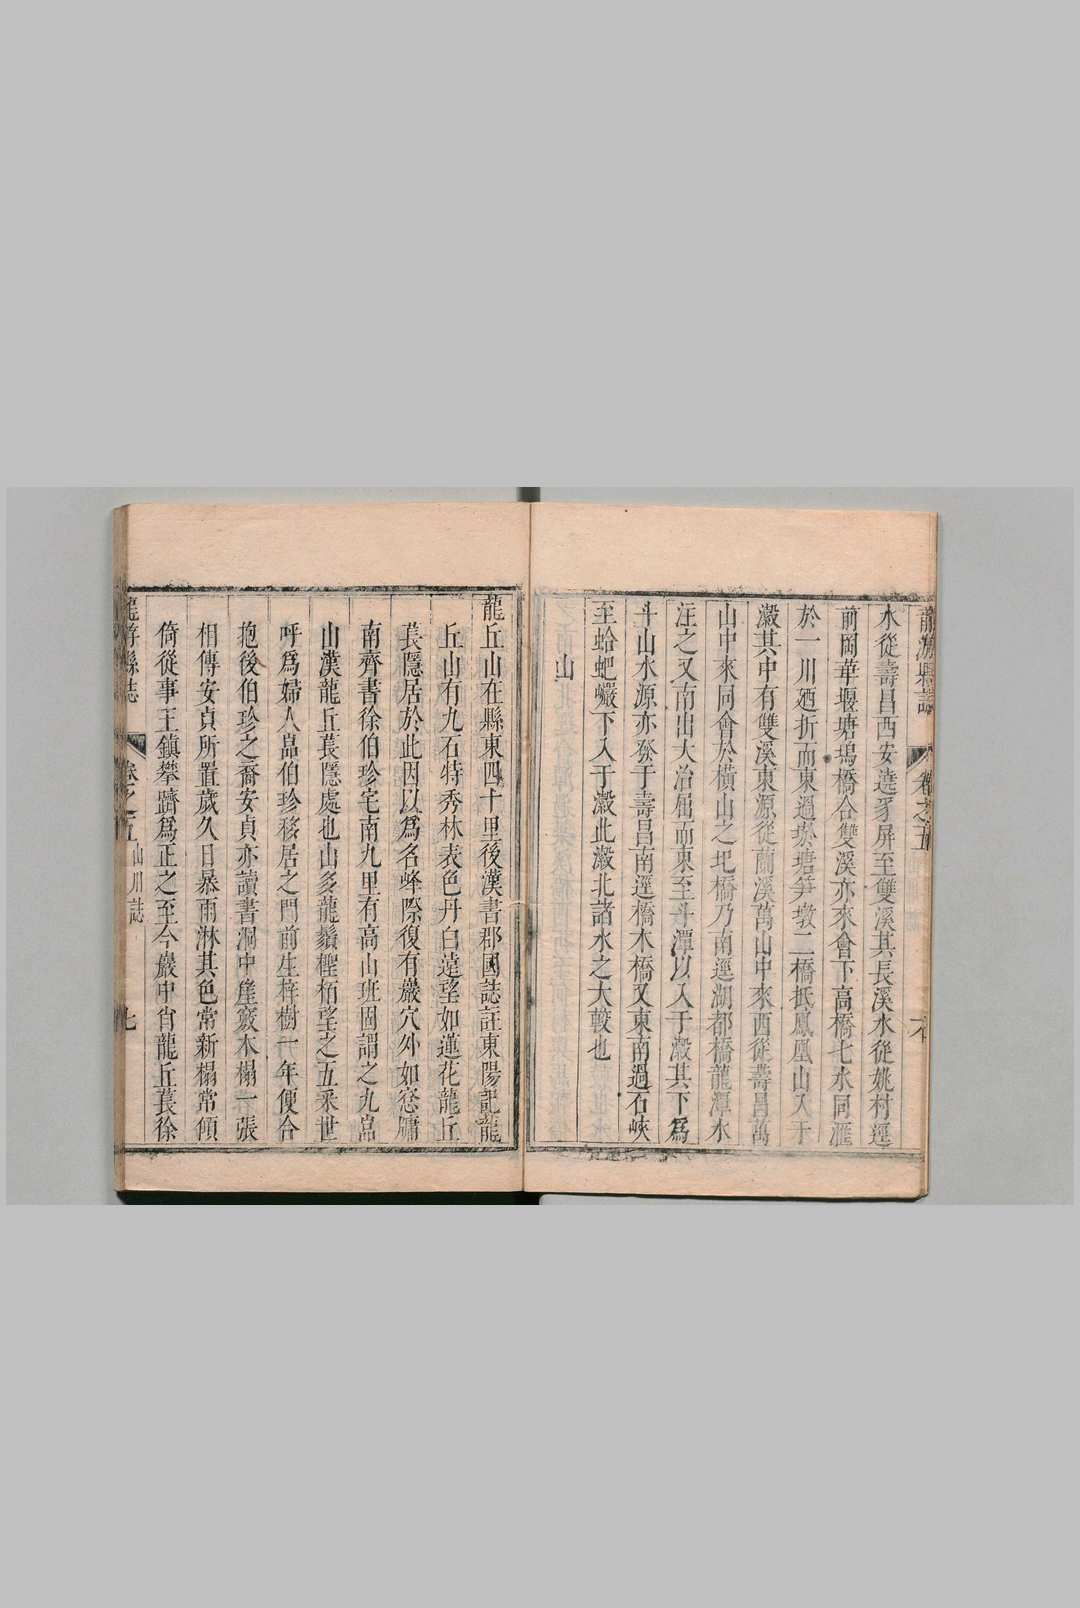 龍游縣誌 卷之五 六
水從壽昌西安遶豸屏至雙溪其長溪水從姚村逕
前岡華堰塘塢橋合雙溪亦來會下高橋七水同滙
於一川廼折而東過菸塘笋墩二橋抵鳳凰山入于
瀫其中有雙溪東源從蘭溪萬山中來西從壽昌萬
山中來同會於橫山之圯橋乃南逕湖都橋龍潭水
注之又南出大冶周而東至斗潭以入于瀫其下爲
斗山水源亦發于壽昌南逕橋木橋又東南過石峽
至蛤蚆巗下入于瀫此瀫北諸水之大較也
山
龍丘山在縣東四十里後漢書郡國誌註東陽記龍
丘山有九石特秀林表色丹白遠望如蓮花龍丘
萇隱居於此因以爲名峰際復有巖穴外如窓牖
南齊書徐伯珍宅南九里有高山班固謂之九嵓
山漢龍丘萇隱處也山多龍鬚檉栢望之五采世
呼爲婦人嵓伯珍移居之門前生梓樹一年便合
抱後伯珍之裔安貞亦讀書洞中崖竅木榻一張
相傳安貞所置歲久日暴雨淋其色常新榻常傾
倚從事王鎮攀躋爲正之至今巖中肖龍丘萇徐
龍游縣誌 卷之五 山川誌 七